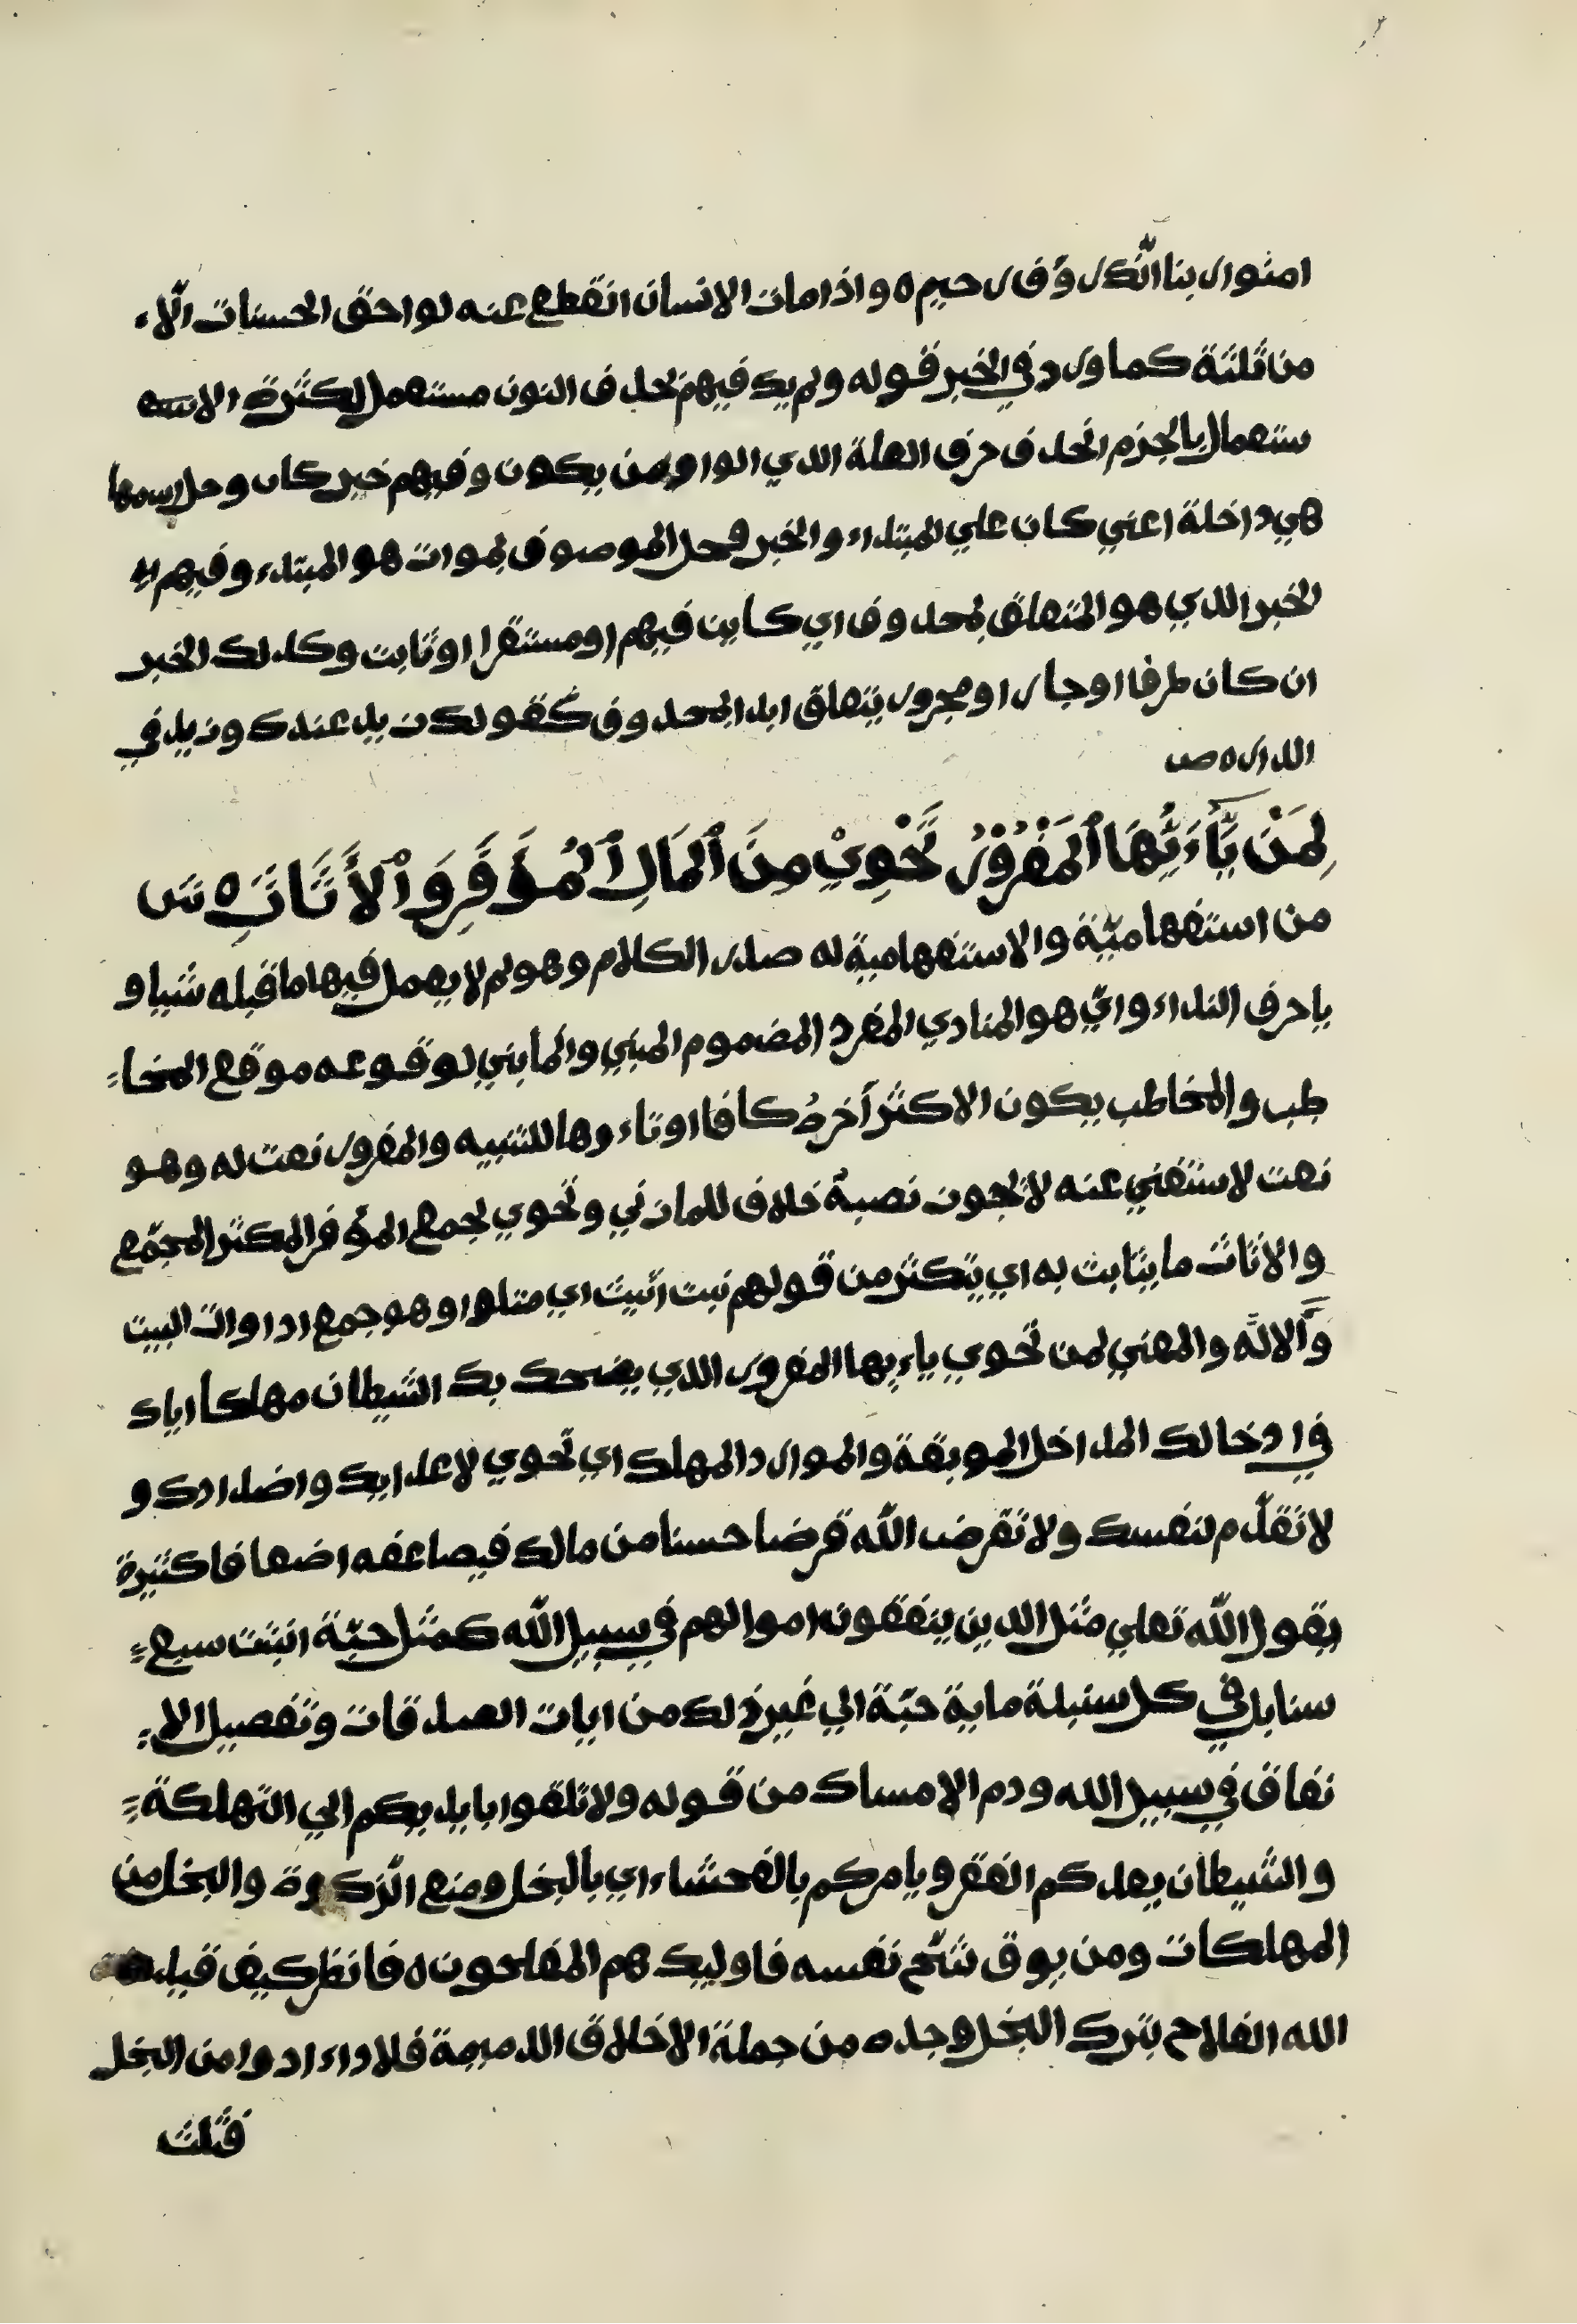 امنوا ربنا انّك رؤف رحيم ه واذا مات الانسان انقطع عنه لواحق الحسنات الّا
من ثلثة كما ورد في الخبر قوله ولم يك فيهم بحذف النون مستعمل لكثرة الا
ستعمال بالجزم انحذف حرف العلة الذي الواو من يكون وفيهم خبر كان وحل اسمها
هي داخلة اعني كان علي المبتداء والخبر فحل الموصوف بموات هو المبتداء وفيهم
الخبر الذي هو المتعلق بمحذوف اي كاين فيهم او مستقرا او ثابت وكذلك الخبر
ان كان ظرفا او جار او مجرور يتعلق ابدا بمحذوف كقولك زيد عندك وزيد في
الدار ه ص
لِمَنْ يَّآءَيُّهَا ٱلمَغْرُوْرُ تَّحْوِيْ مِنَ ٱلمَالِ ٱلمُؤَفَّرِ وَٱلأَثَاثِ ه ش
من استفهاميّة والاستفهامية له صدر الكلام وهو لم لا يعمل فيها ما قبله شيا و
يا حرف النداء وايّ هو المنادي المفرد المضموم المبني وانّما بني لوقوعه موقع المخا
طب والمخاطب يكون الاكثر آخرهُ كافا او تاء وها للتنبيه والمغرور نعت له وهو
نعت لا ستغني عنه لا يجوز نصبه خلاف للمازني وتحوي تجمع المؤفر المكثر المجمّع
والاثاث ما يتابث به اي يتكثر من قولهم نبت اثيث اي متلوا وهو جمع ادوات البيت
وآلالَه والمعني لمن تحوي ياءيها المغرور الذي يضحك بك الشيطان مهلكا اياك
في ادخالك المداخل الموبقة والموارد المهلك اي تحوي لاعدايك واضدادك و
لا تقدّم لنفسك ولا تقرض اللّه قرضا حسنا من مالك فيصاعفه اضعافا كثيرة
يقول اللّه تعلي مثل الذين ينفقون اموالهم في سبيل اللّه كمثل حبّة انبتت سبع
سنابل في كل سنبلة ماية حبّة الي غير ذلك من ايات الصدقات وتفصيل الا
نفاق في سبيل الله وذم الامساك من قوله ولا تلقوا بايديكم الي التهلكة
والشيطان يعدكم الفقر ويامركم بالفحشاء اي بالبخل ومنع الزّكوة والبخل من
المهلكات ومن يوق شحّ نفسه فاوليك هم المفلحون ه فانظر كيف قيد
الله الفلاح بترك البخل وحده من جملة الاخلاق الذميمة فلا داء ادوا من البخل
قلت